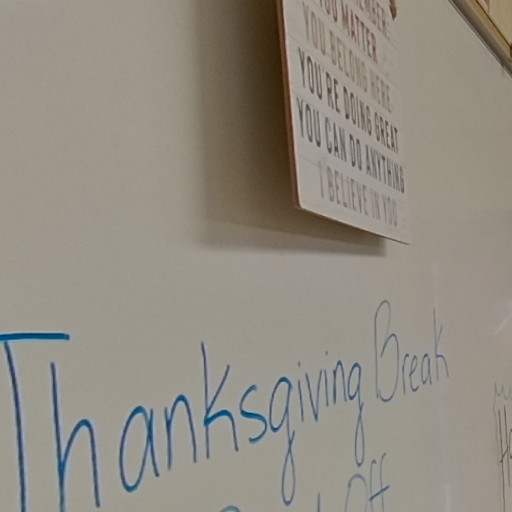 YOU MATTER.
YOU BELONG HERE.
YOU'RE DOING GREAT
YOU CAN DO ANYTHING
I BELIEVE IN YOU
Thanksgiving Break
Off